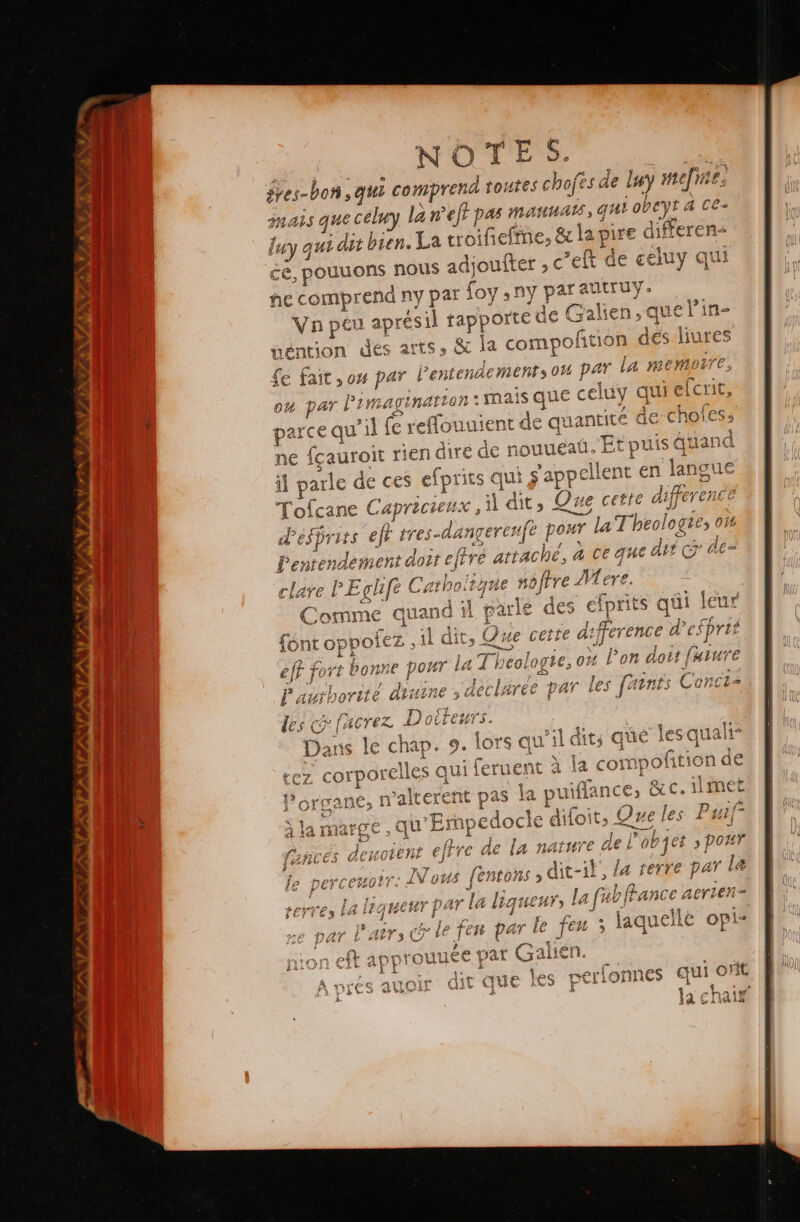 NOTES.
tres-bon, qui comprend toutes choſes de luy meſme;
mais que celuy là n'eſt pas mauuais, qui obeyt à ce-
luy qui dit bien. La troiſieſme, & la pire differen-
ce, pouuons nous adjouſter, c'eſt de celuy qui
ne comprend ny par ſoy, ny par autruy.
Vn peu aprés il rapporte de Galien, que l'in-
uention des arts, & la compoſition des liures
ſe fait, ou par l'entendement, ou par la memoire,
ou par l'imagination: mais que celuy qui eſcrit,
parce qu'il ſe reſſouuient de quantité de choſes,
ne ſçauroit rien dire de nouueau. Et puis quand
il parle de ces eſprits qui s'appellent en langue
Toſcane Capricieux, il dit, Que cette difference
d'eſprits eſt tres-dangereuſe pour la Theologie, où
l'entendement doit eſtre attaché, à ce que dit & de-
clare l'Egliſe Catholique noſtre Mere.
Comme quand il parle des eſprits qui leur
ſont oppoſez, il dit, Que cette difference d'eſprit
eſt fort bonne pour la Theologie, où l'on doit ſuiure
l'authorité diuine, declarée par les ſaints Conci-
les & ſacrez Docteurs.
Dans le chap. 9. lors qu'il dit, que les quali-
tez corporelles qui ſeruent à la compoſition de
l'organe, n'alterent pas la puiſſance, &c. il met
à la marge, qu'Empedocle diſoit, Que les Puiſ-
ſances deuoient eſtre de la nature de l'objet, pour
le perceuoir: Nous ſentons, dit-il, la terre par la
terre, la liqueur par la liqueur, la ſubſtance aerien-
ne par l'air, & le feu par le feu; laquelle opi-
nion eſt approuuée par Galien.
Aprés auoir dit que les perſonnes qui ont
la chair